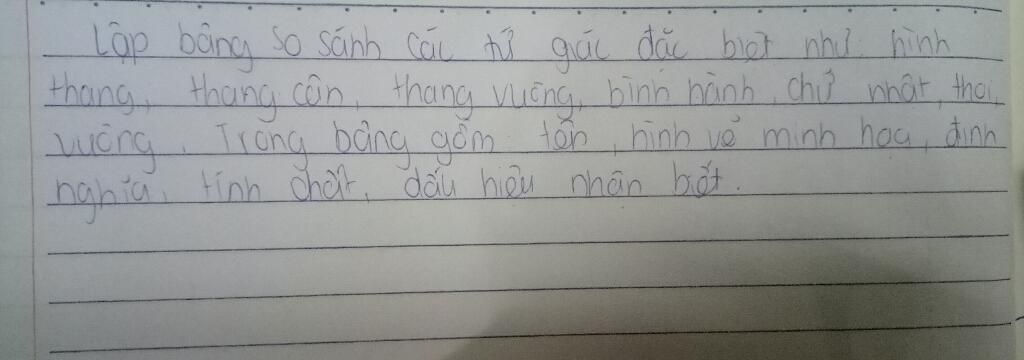 Lập bảng so sánh các tứ giác đặc biệt như: hình
thang, thang cân, thang vuông, bình hành, chữ nhật, thoi,
vuông. Trong bảng gồm tên, hình vẽ minh họa, định
nghĩa, tính chất, dấu hiệu nhận biết.